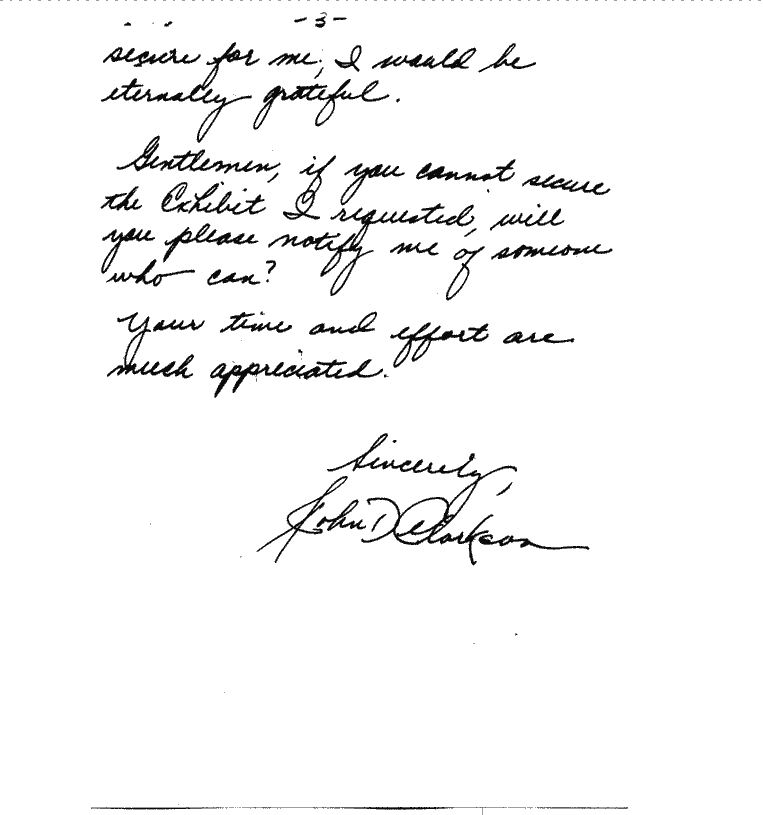 -3-
secure for me, I would be
eternally grateful.
Gentlemen, if you cannot secure
the Exhibit I requested, will
you please notify me of someone
who can?
Your time and effort are
much appreciated.
Sincerely,
John D Clarkson